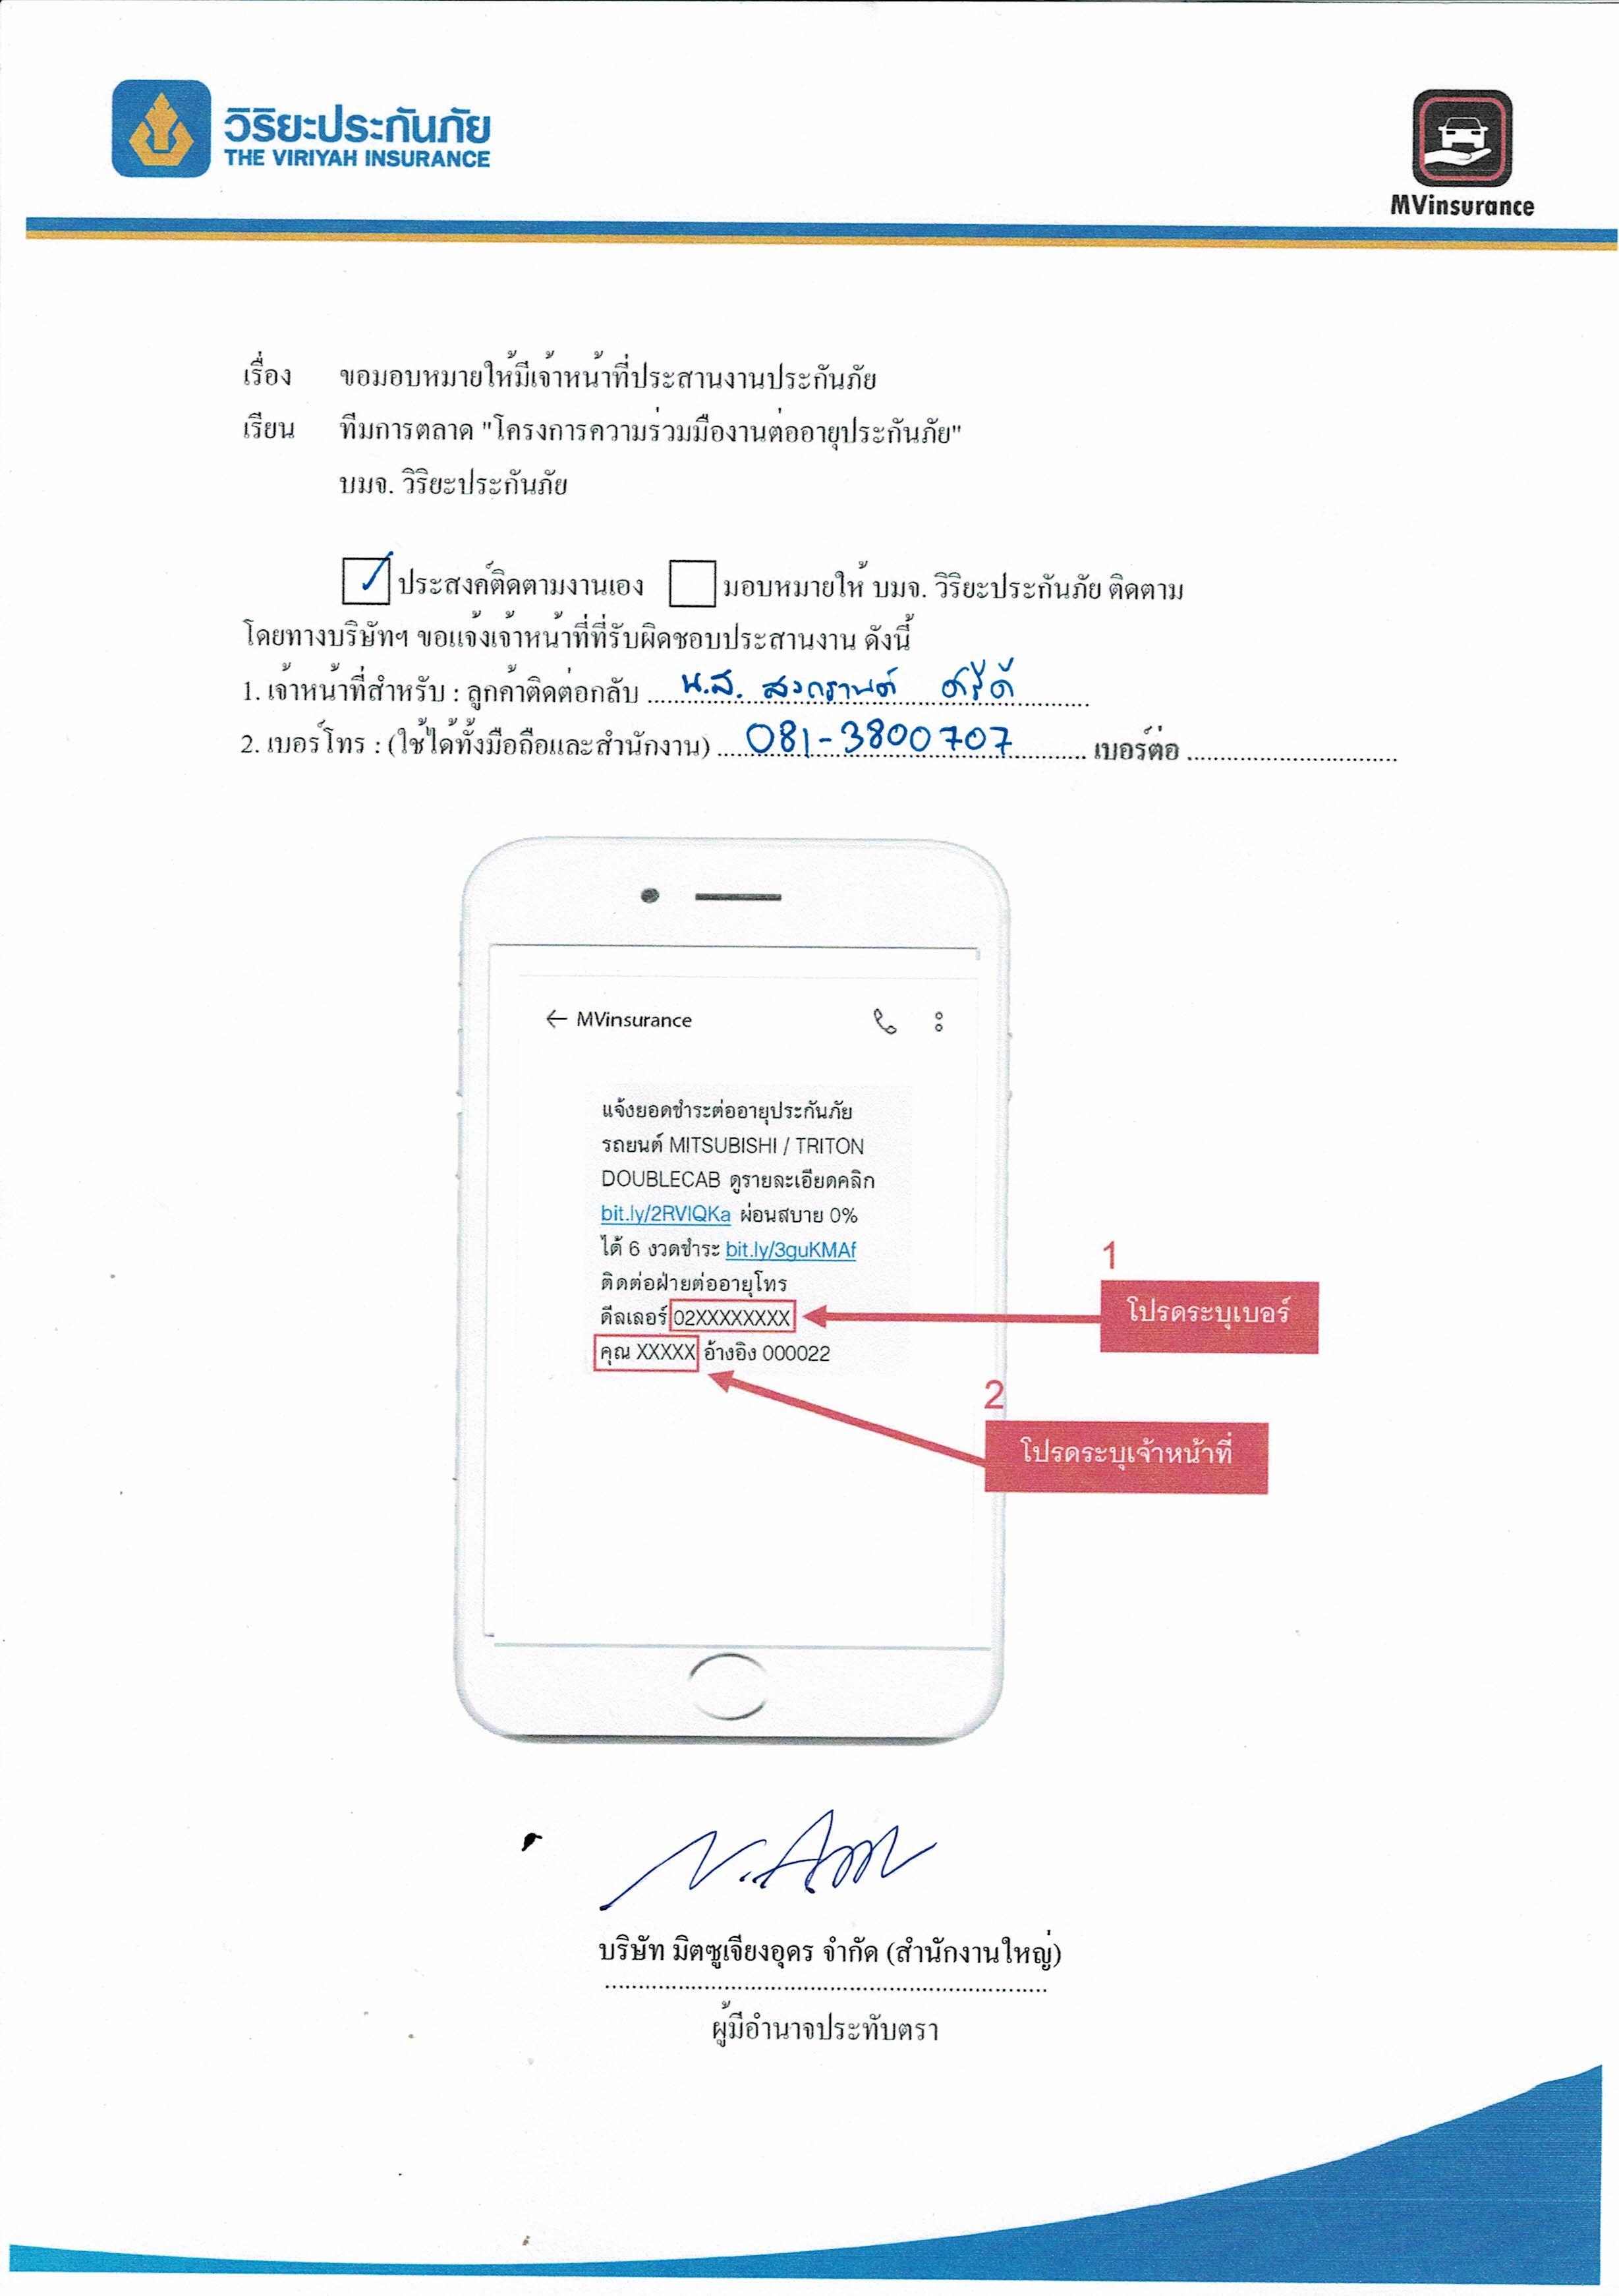 วิริยะประกันภัย
THE VIRIYAH INSURANCE
MVinsurance
เรื่อง ขอมอบหมายให้มีเจ้าหน้าที่ประสานงานประกันภัย
เรียน ทีมการตลาด "โครงการความร่วมมืองานต่ออายุประกันภัย"
บมจ. วิริยะประกันภัย
ประสงค์ติดตามงานเอง มอบหมายให้ บมจ. วิริยะประกันภัย ติดตาม
โดยทางบริษัทฯ ขอแจ้งเจ้าหน้าที่ที่รับผิดชอบประสานงาน ดังนี้
1. เจ้าหน้าที่สำหรับ : ลูกค้าติดต่อกลับ น.ส. สงกรานต์
2. เบอร์โทร : (ใช้ได้ทั้งมือถือและสำนักงาน) 081-3800707 เบอร์ต่อ
← MVinsurance
แจ้งยอดชำระต่ออายุประกันภัย
รถยนต์ MITSUBISHI / TRITON
DOUBLECAB ดูรายละเอียดคลิก
bit.ly/2RVIQKa ผ่อนสบาย 0%
ได้ 6 งวดชำระ bit.ly/3guKMAf
ติดต่อฝ่ายต่ออายุโทร
ดีลเลอร์ 02XXXXXXXX
คุณ XXXXX อ้างอิง 000022
1
โปรดระบุเบอร์
2
โปรดระบุเจ้าหน้าที่
บริษัท มิตซูเจียงอุดร จำกัด (สำนักงานใหญ่)
ผู้มีอำนาจประทับตรา